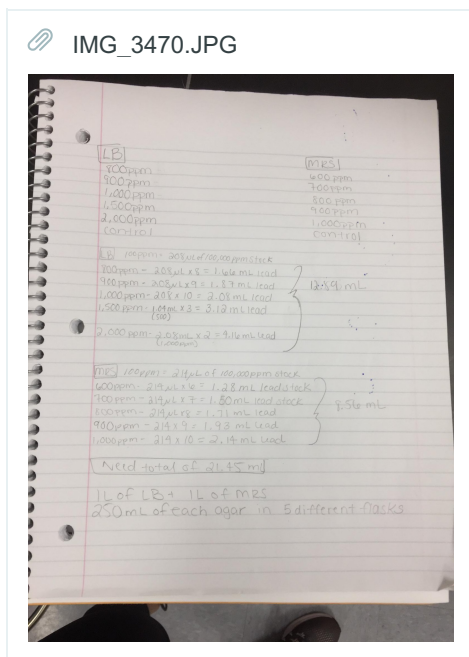 IMG_3470.JPG
LB
800ppm
900ppm
1,000ppm
1,500ppm
2,000ppm
control
MRS
600ppm
700ppm
800ppm
900ppm
1,000ppm
control
LB 100ppm - 208µL of 100,000ppm stock
800ppm - 208µL x 8 = 1.66mL lead
900ppm - 208µL x 9 = 1.87mL lead
1,000ppm - 208 x 10 = 2.08mL lead
1,500ppm - 1.04mL x 3 = 3.12mL lead
(500)
2,000ppm - 2.08mL x 2 = 4.16mL lead
(1,000ppm)
12.89 mL
MRS 100ppm - 214µL of 100,000ppm stock
600ppm - 214µL x 6 = 1.28mL lead stock
700ppm - 214µL x 7 = 1.50mL lead stock
800ppm - 214µL x 8 = 1.71mL lead
900ppm - 214 x 9 = 1.93mL lead
1,000ppm - 214 x 10 = 2.14mL Lead
8.56 mL
Need total of 21.45 ml
1L of LB + 1L of MRS
250mL of each agar in 5 different flasks